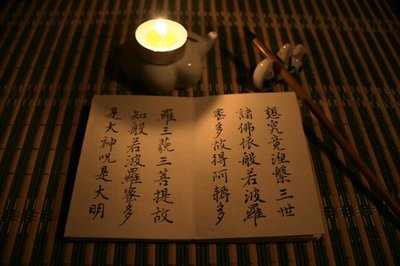 想究竟涅槃三世
諸佛依般若波羅
蜜多故得阿耨多
羅三藐三菩提故
知般若波羅蜜多
是大神呪是大明